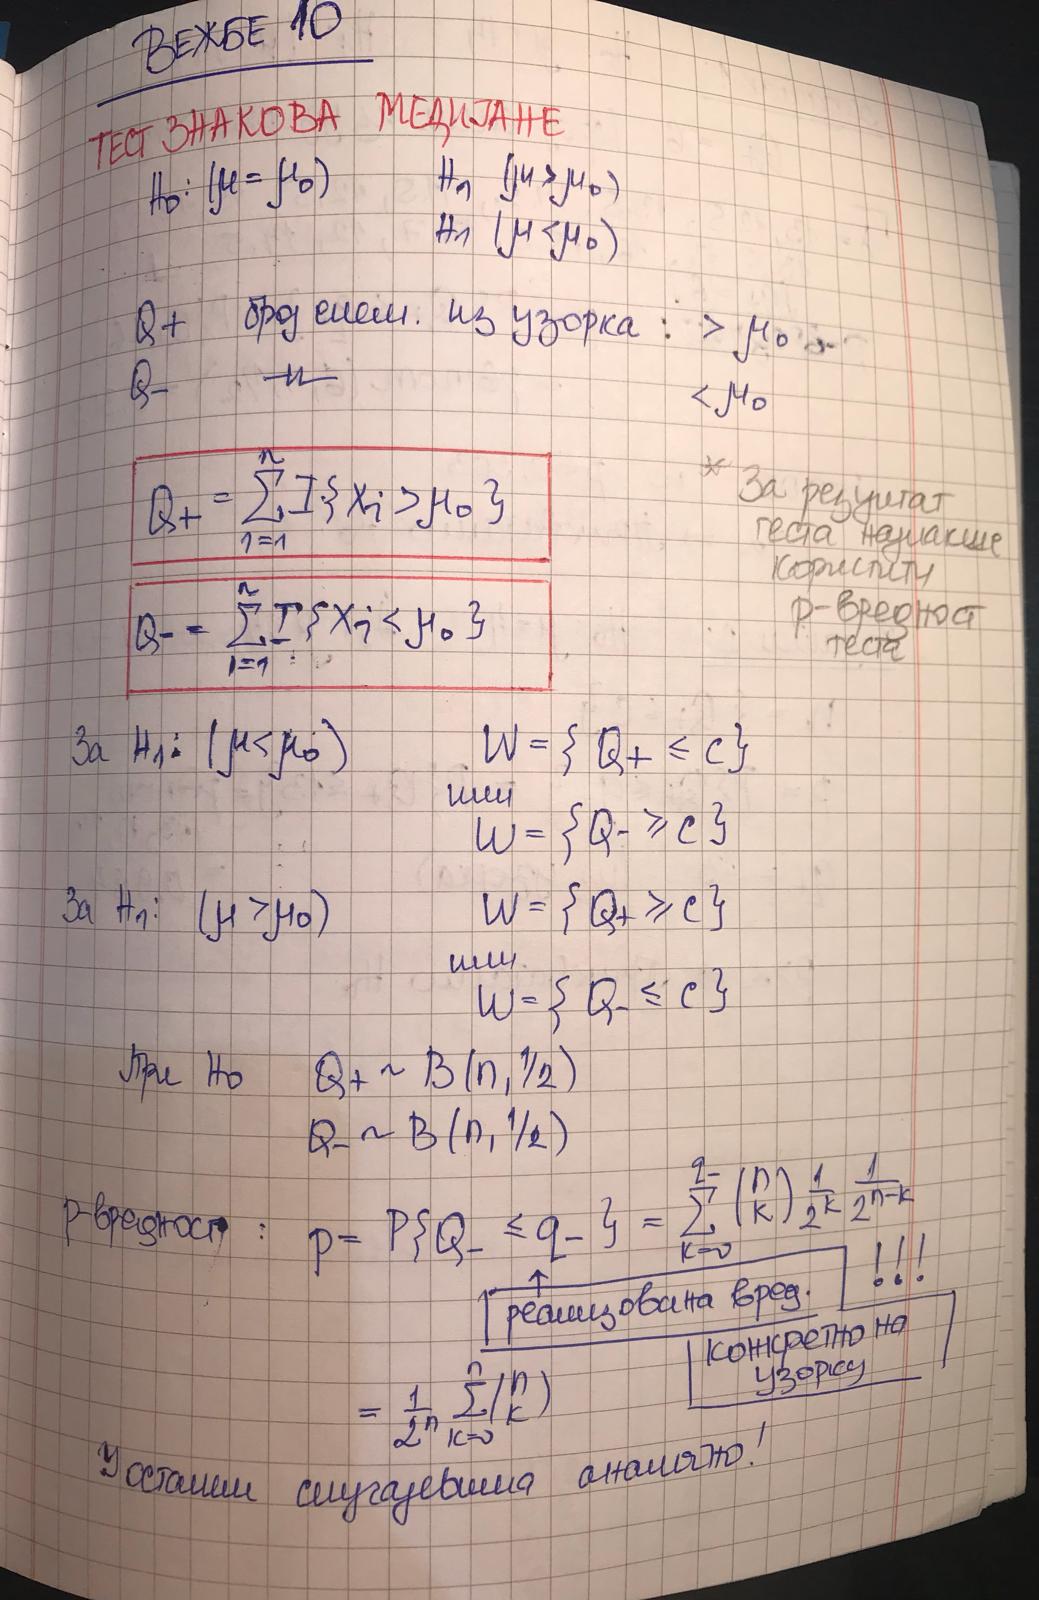 ВЕЖБЕ 10
ТЕСТ ЗНАКОВА МЕДИЈАНЕ
H₀: (μ = μ₀) H₁ (μ > μ₀)
H₁ (μ < μ₀)
Q₊ број елем. из узорка : > μ₀
Q₋ —॥— < μ₀
Q₊ = ∑ᵢ₌₁ⁿ I{Xᵢ > μ₀}
Q₋ = ∑ᵢ₌₁ⁿ I{Xᵢ < μ₀}
* За резултат
теста најлакше
користити
p-вредност
теста
За H₁: (μ < μ₀) W = {Q₊ ≤ c}
или
W = {Q₋ ≥ c}
За H₁: (μ > μ₀) W = {Q₊ ≥ c}
или
W = {Q₋ ≤ c}
При H₀ Q₊ ~ B(n, 1/2)
Q₋ ~ B(n, 1/2)
p-вредност : p = P{Q₋ ≤ q₋} = ∑ₖ₌₀^{q₋} (n k) 1/2ᵏ 1/2ⁿ⁻ᵏ
↑ !!!
реализована вред.
конкретно на
узорку
= 1/2ⁿ ∑ₖ₌₀ⁿ (n k)
У осталим случајевима аналогно!